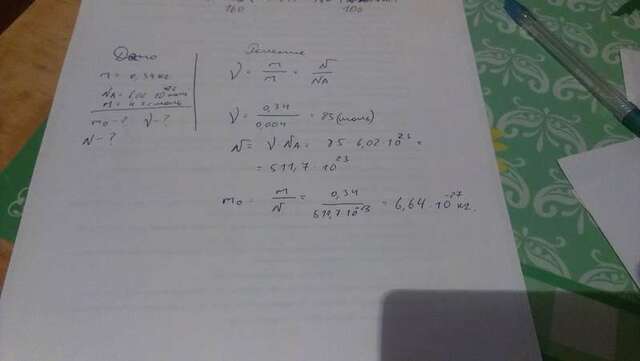 160 100
Дано
m = 0,34 кг
NA = 6,02 · 10²³
M = 4
m₀ - ? ν - ?
N - ?
Решение
ν = m/M = N/NA
ν = 0,34/0,004 = 85 (моль)
N = ν NA = 85 · 6,02 · 10²³ =
= 511,7 · 10²³
m₀ = m/N = 0,34/511,7·10²³ = 6,64 · 10⁻²⁷ кг.